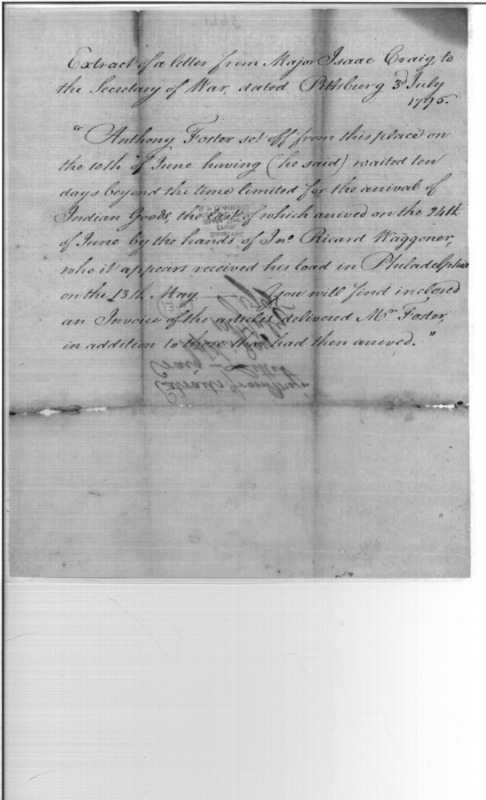 Extract of a letter from Major Isaac Craig, to
the Secretary of War, dated Pittsburg 3d July
1795.
"Anthony Foster set off from this place on
the 10th of June having (he said) waited ten
days beyond the time limited for the arrival of
Indian Goods, the last of which arrived on the 24th
of June by the hands of Jno. Ricard Waggoner,
who it appears received his load in Philadelphia
on the 13th May. ——— you will find inclosed
an Invoice of the articles delivered Mr. Foster,
in addition to those that had then arrived."